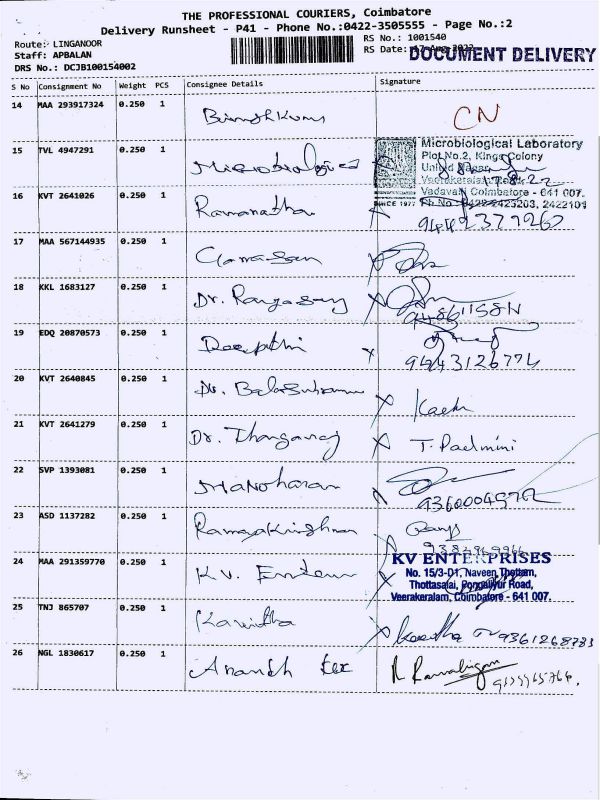 THE PROFESSIONAL COURIERS, Coimbatore
Delivery Runsheet - P41 - Phone No.:0422-3505555 - Page No.:2
Route: LINGANOOR
RS No.: 1001540
Staff: APBALAN
RS Date: 17-Aug-2022
DOCUMENT DELIVERY
DRS No.: DCJB100154002
S No Consignment No Weight PCS Consignee Details Signature
14 MAA 293917324 0.250 1
CN
15 TVL 4947291 0.250 1 Microbiological
Microbiological Laboratory
Plot No.2, Kings Colony
16 KVT 2641026 0.250 1 Ramanathan
Vadavalli Coimbatore - 641 007.
SINCE 1977 Ph No 0422-2423203, 2422101
17 MAA 567144935 0.250 1
18 KKL 1683127 0.250 1 Dr. Rangasamy
19 EDQ 20870573 0.250 1 Deepthi
9443126774
20 KVT 2640845 0.250 1 Dr.
21 KVT 2641279 0.250 1 Dr. Thangaraj T. Padmini
22 SVP 1393081 0.250 1 Manoharan
23 ASD 1137282 0.250 1 Ramakrishnan
24 MAA 291359770 0.250 1 K.V.
KV ENTERPRISES
No. 15/3-D1, Naveen Thottam,
Thottasalai, Pongaliyur Road,
Veerakeralam, Coimbatore - 641 007.
25 TNJ 865707 0.250 1 Kavitha
9361268783
26 NGL 1830617 0.250 1 Anandh